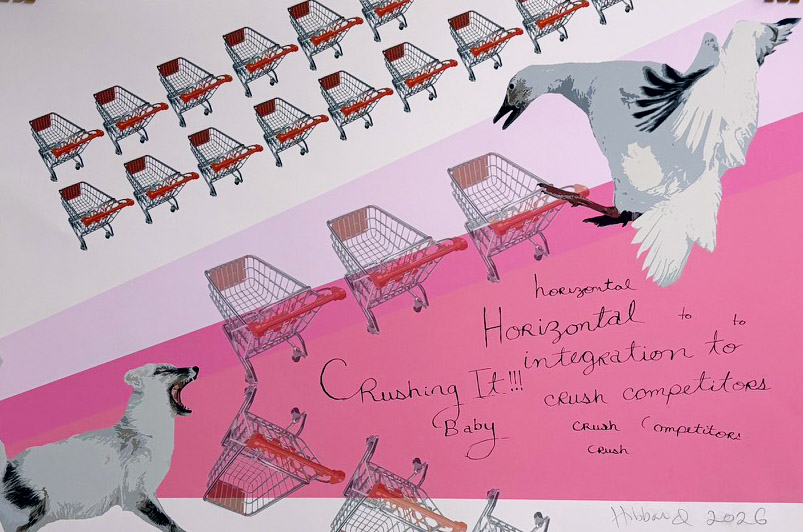 horizontal
Horizontal to to
integration to
Crushing It!!! crush competitors
Baby crush Competitors
crush
Hibbard 2026